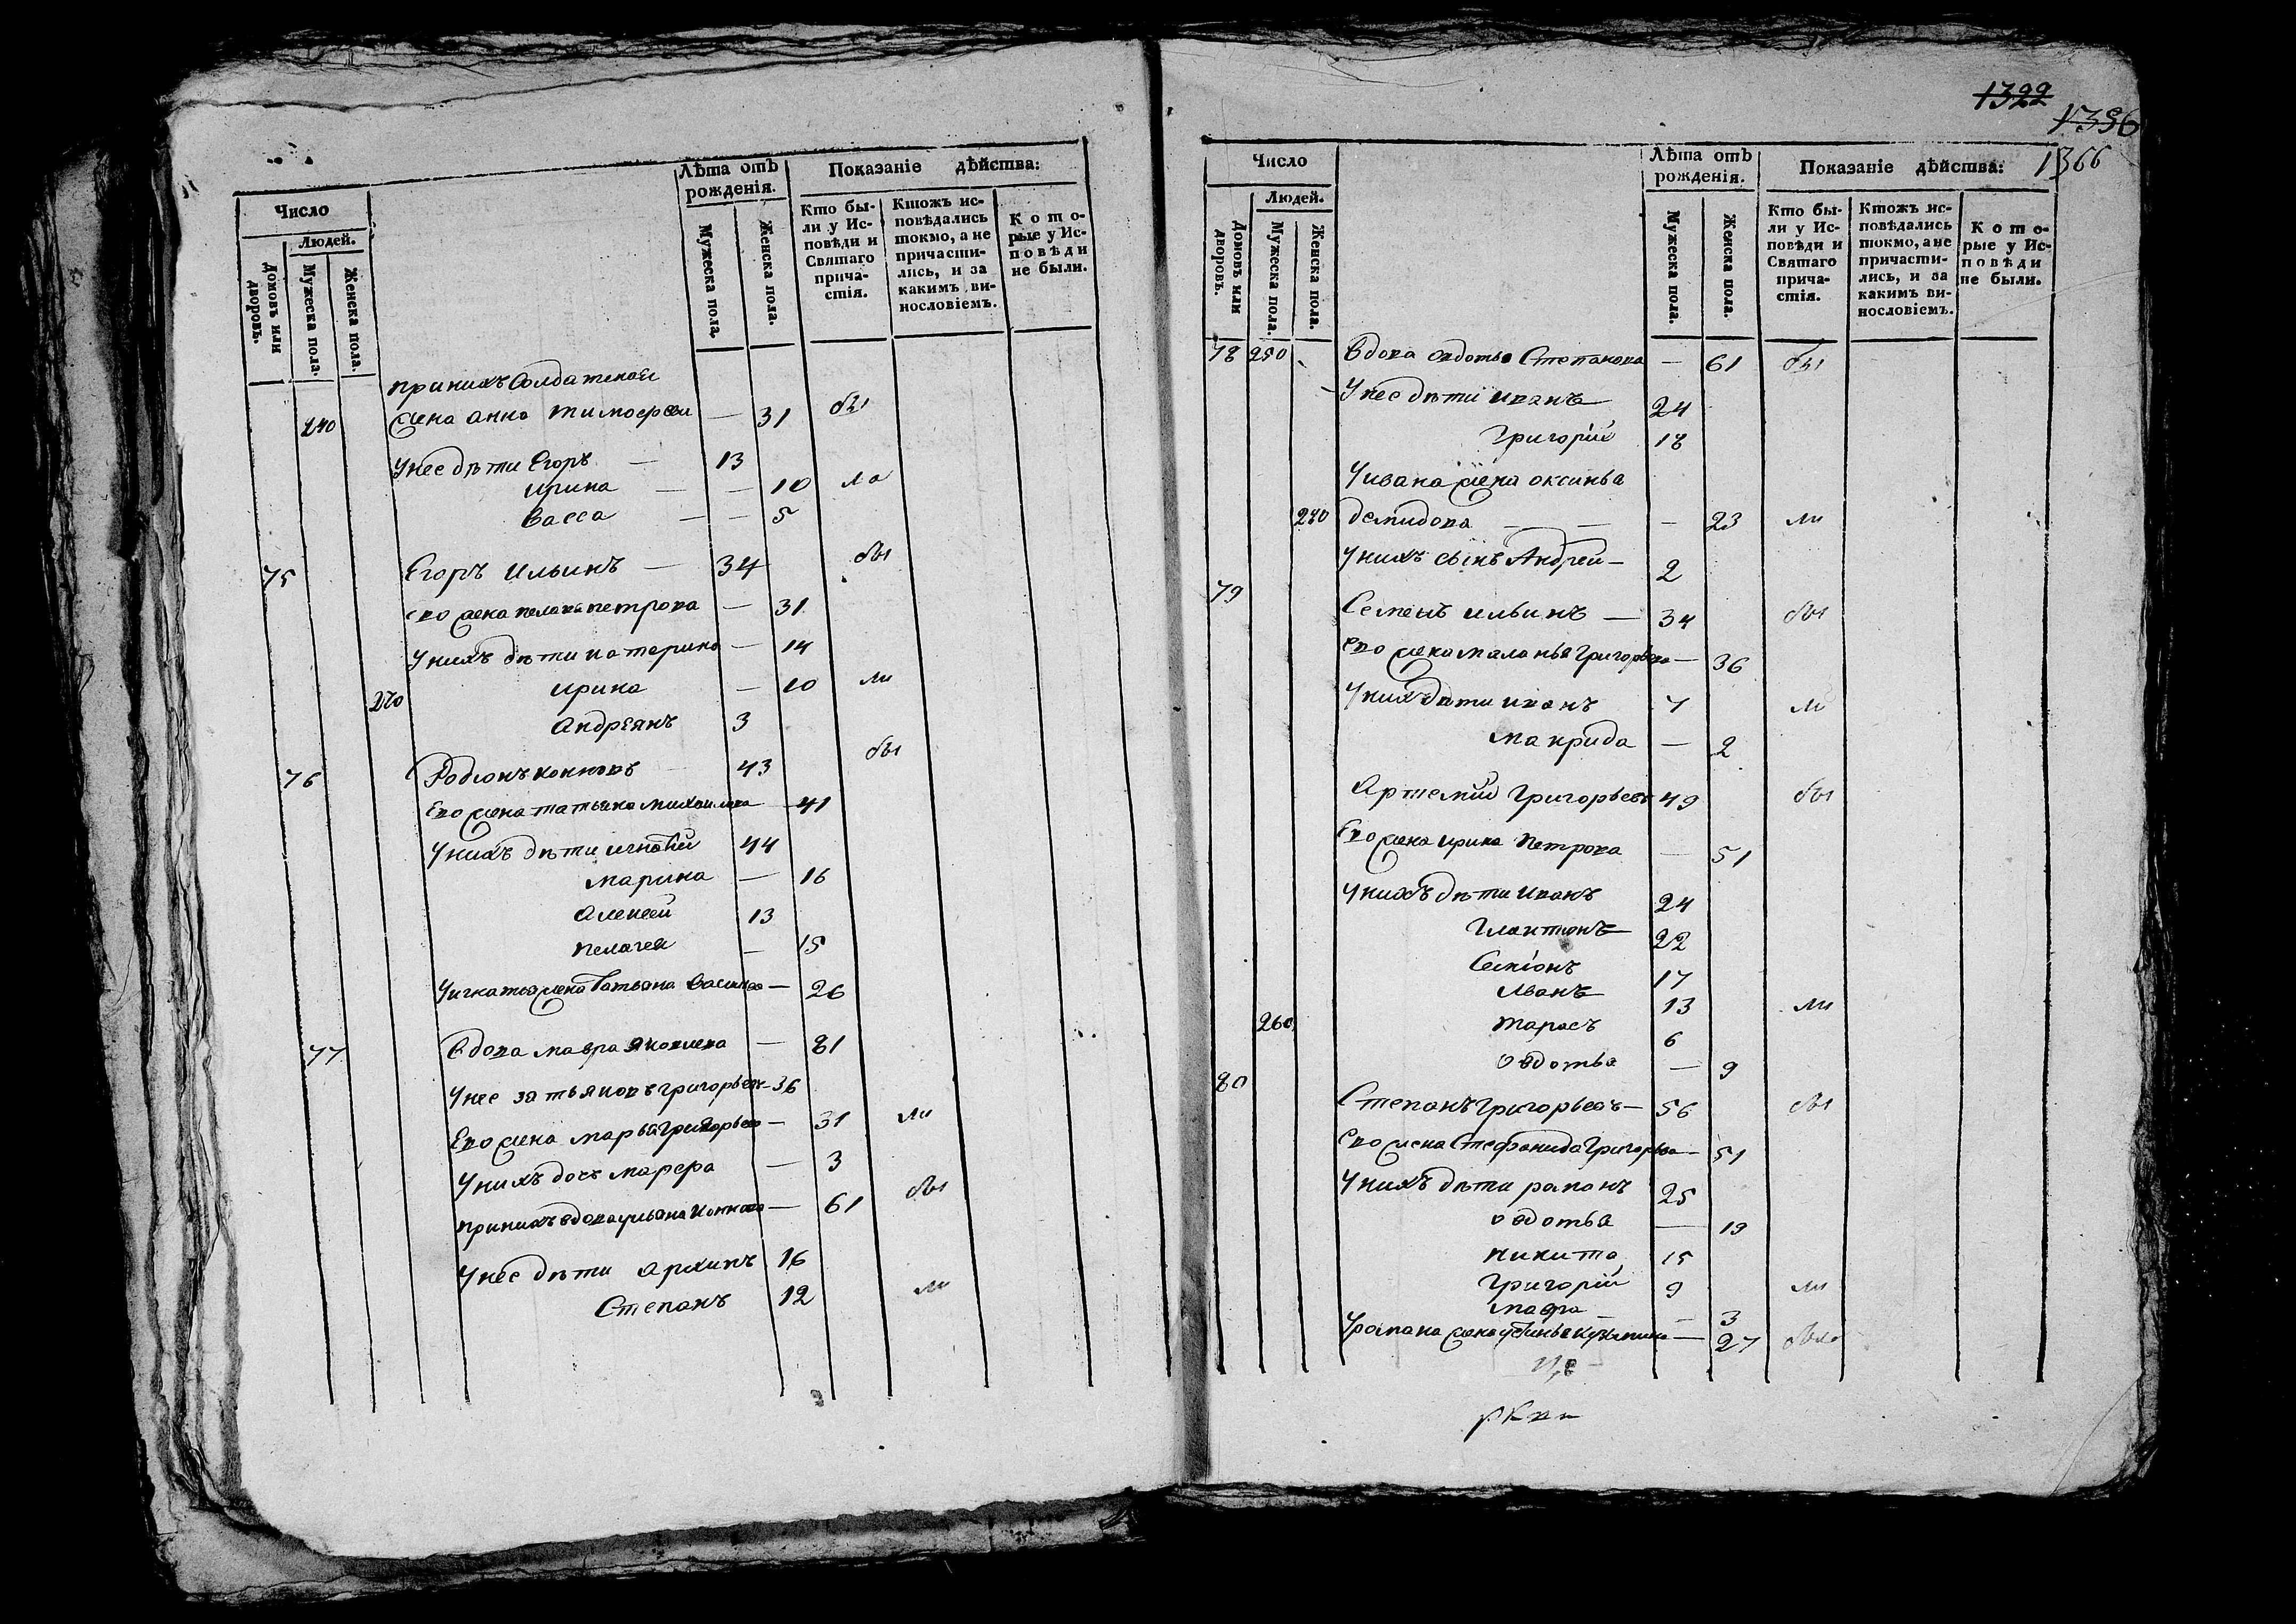 Число
Людей.
Домовъ или дворовъ.
Мужеска пола.
Женска пола.
Лѣта отъ рожденія.
Мужеска пола.
Женска пола.
Показаніе дѣйства:
Кто бы-
ли у Ис-
повѣди и
Святаго
прича-
стія.
Ктожъ ис-
повѣдались
токмо, а не
причасти-
лись, и за
какимъ ви-
нословіемъ.
Кото-
рые у Ис-
повѣди
не были.
принихъ Солдатская
240 жена анна тимофеева — 31 бы
Унее дѣти Егоръ — 13
ирина — — 10 ли
васса — — 5
75 Егоръ Ильинъ — 34 бы
его жена пелагея петрова — 31
Унихъ дѣти катерина — 14
270 ирина — 10 ли
андреянъ 3
76 Родіонъ 43 бы
Его жена татьяна михаилова 41
Унихъ дѣти игнатій 44
марина — 16
алексей 13
пелагея — 15
жена татьяна васильева — 26
77 вдова мавра яковлева — 81
Унее зять яковъ григорьевъ 36
Его жена марья григорьева — 31 ли
Унихъ дочь марфа — 3
принихъ вдова ульяна — 61 бы
Унее дѣти архипъ 16
Степанъ 12 ли
1322
1366
Число
Людей.
Домовъ или дворовъ.
Мужеска пола.
Женска пола.
Лѣта отъ рожденія.
Мужеска пола.
Женска пола.
Показаніе дѣйства:
Кто бы-
ли у Ис-
повѣди и
Святаго
прича-
стія.
Ктожъ ис-
повѣдались
токмо, а не
причасти-
лись, и за
какимъ ви-
нословіемъ.
Кото-
рые у Ис-
повѣди
не были.
78 250 вдова овдотья Степанова — 61 бы
Унее дѣти иванъ 24
григорій 18
Уивана жена оксинья
280 демидова — — — 23 ли
Унихъ сынъ Андрей — 2
79 Семенъ ильинъ — 34 бы
его жена маланья григорьева — 36
Унихъ дѣти иванъ 7 ли
макрида — 2
артемий григорьевъ 49 бы
Его жена ирина петрова — 51
Унихъ дѣти иванъ 24
22
Семіонъ 17
иванъ 13 ли
260 тарасъ 6
овдотья — 9
80 Степанъ григорьевъ — 56 бы
его жена Стефанида григорьева — 51
Унихъ дѣти романъ 25
овдотья — 19
никита 15
григорій 9 ли
мавра — 3
Уромана жена устинья — 27